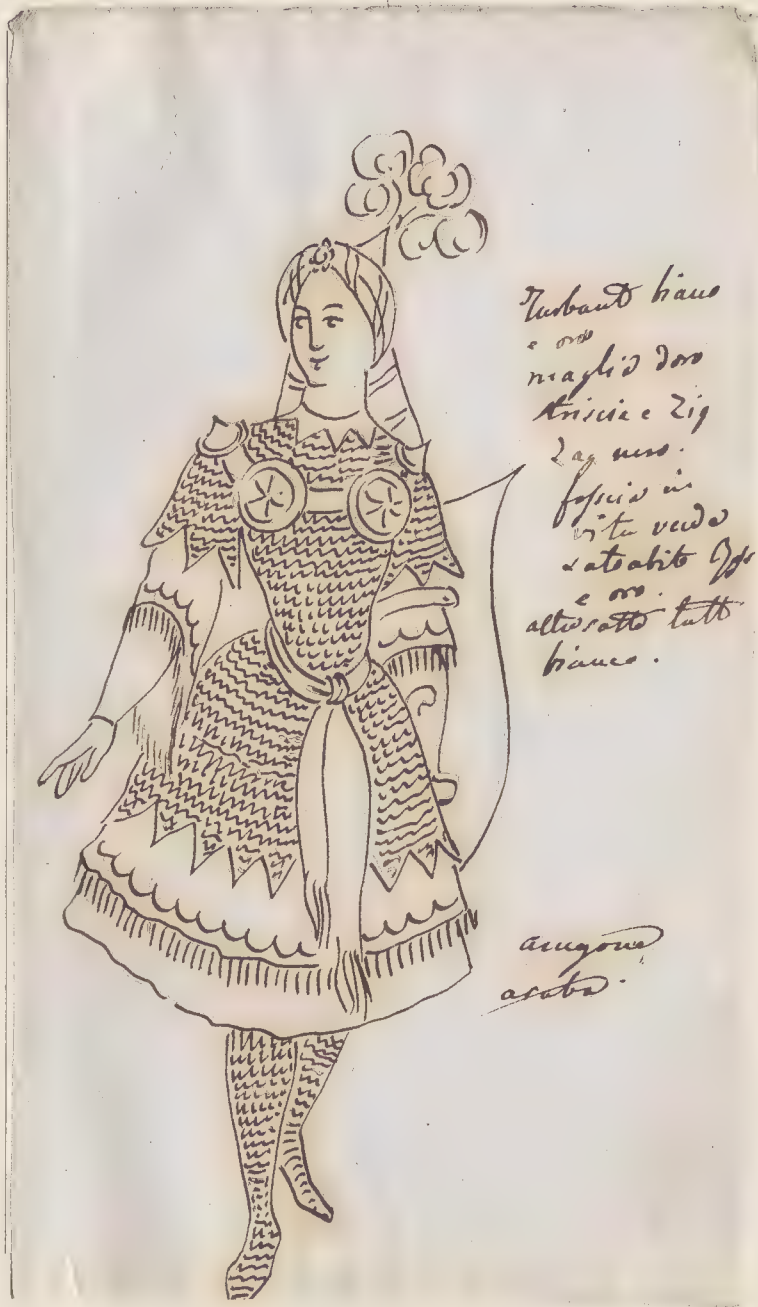 Turbant bianco
e oro
maglia doro
striscia e Zig
Zag nero.
fascia in
vita verde
e oro.
altro sotto tutt
bianco.
araba.